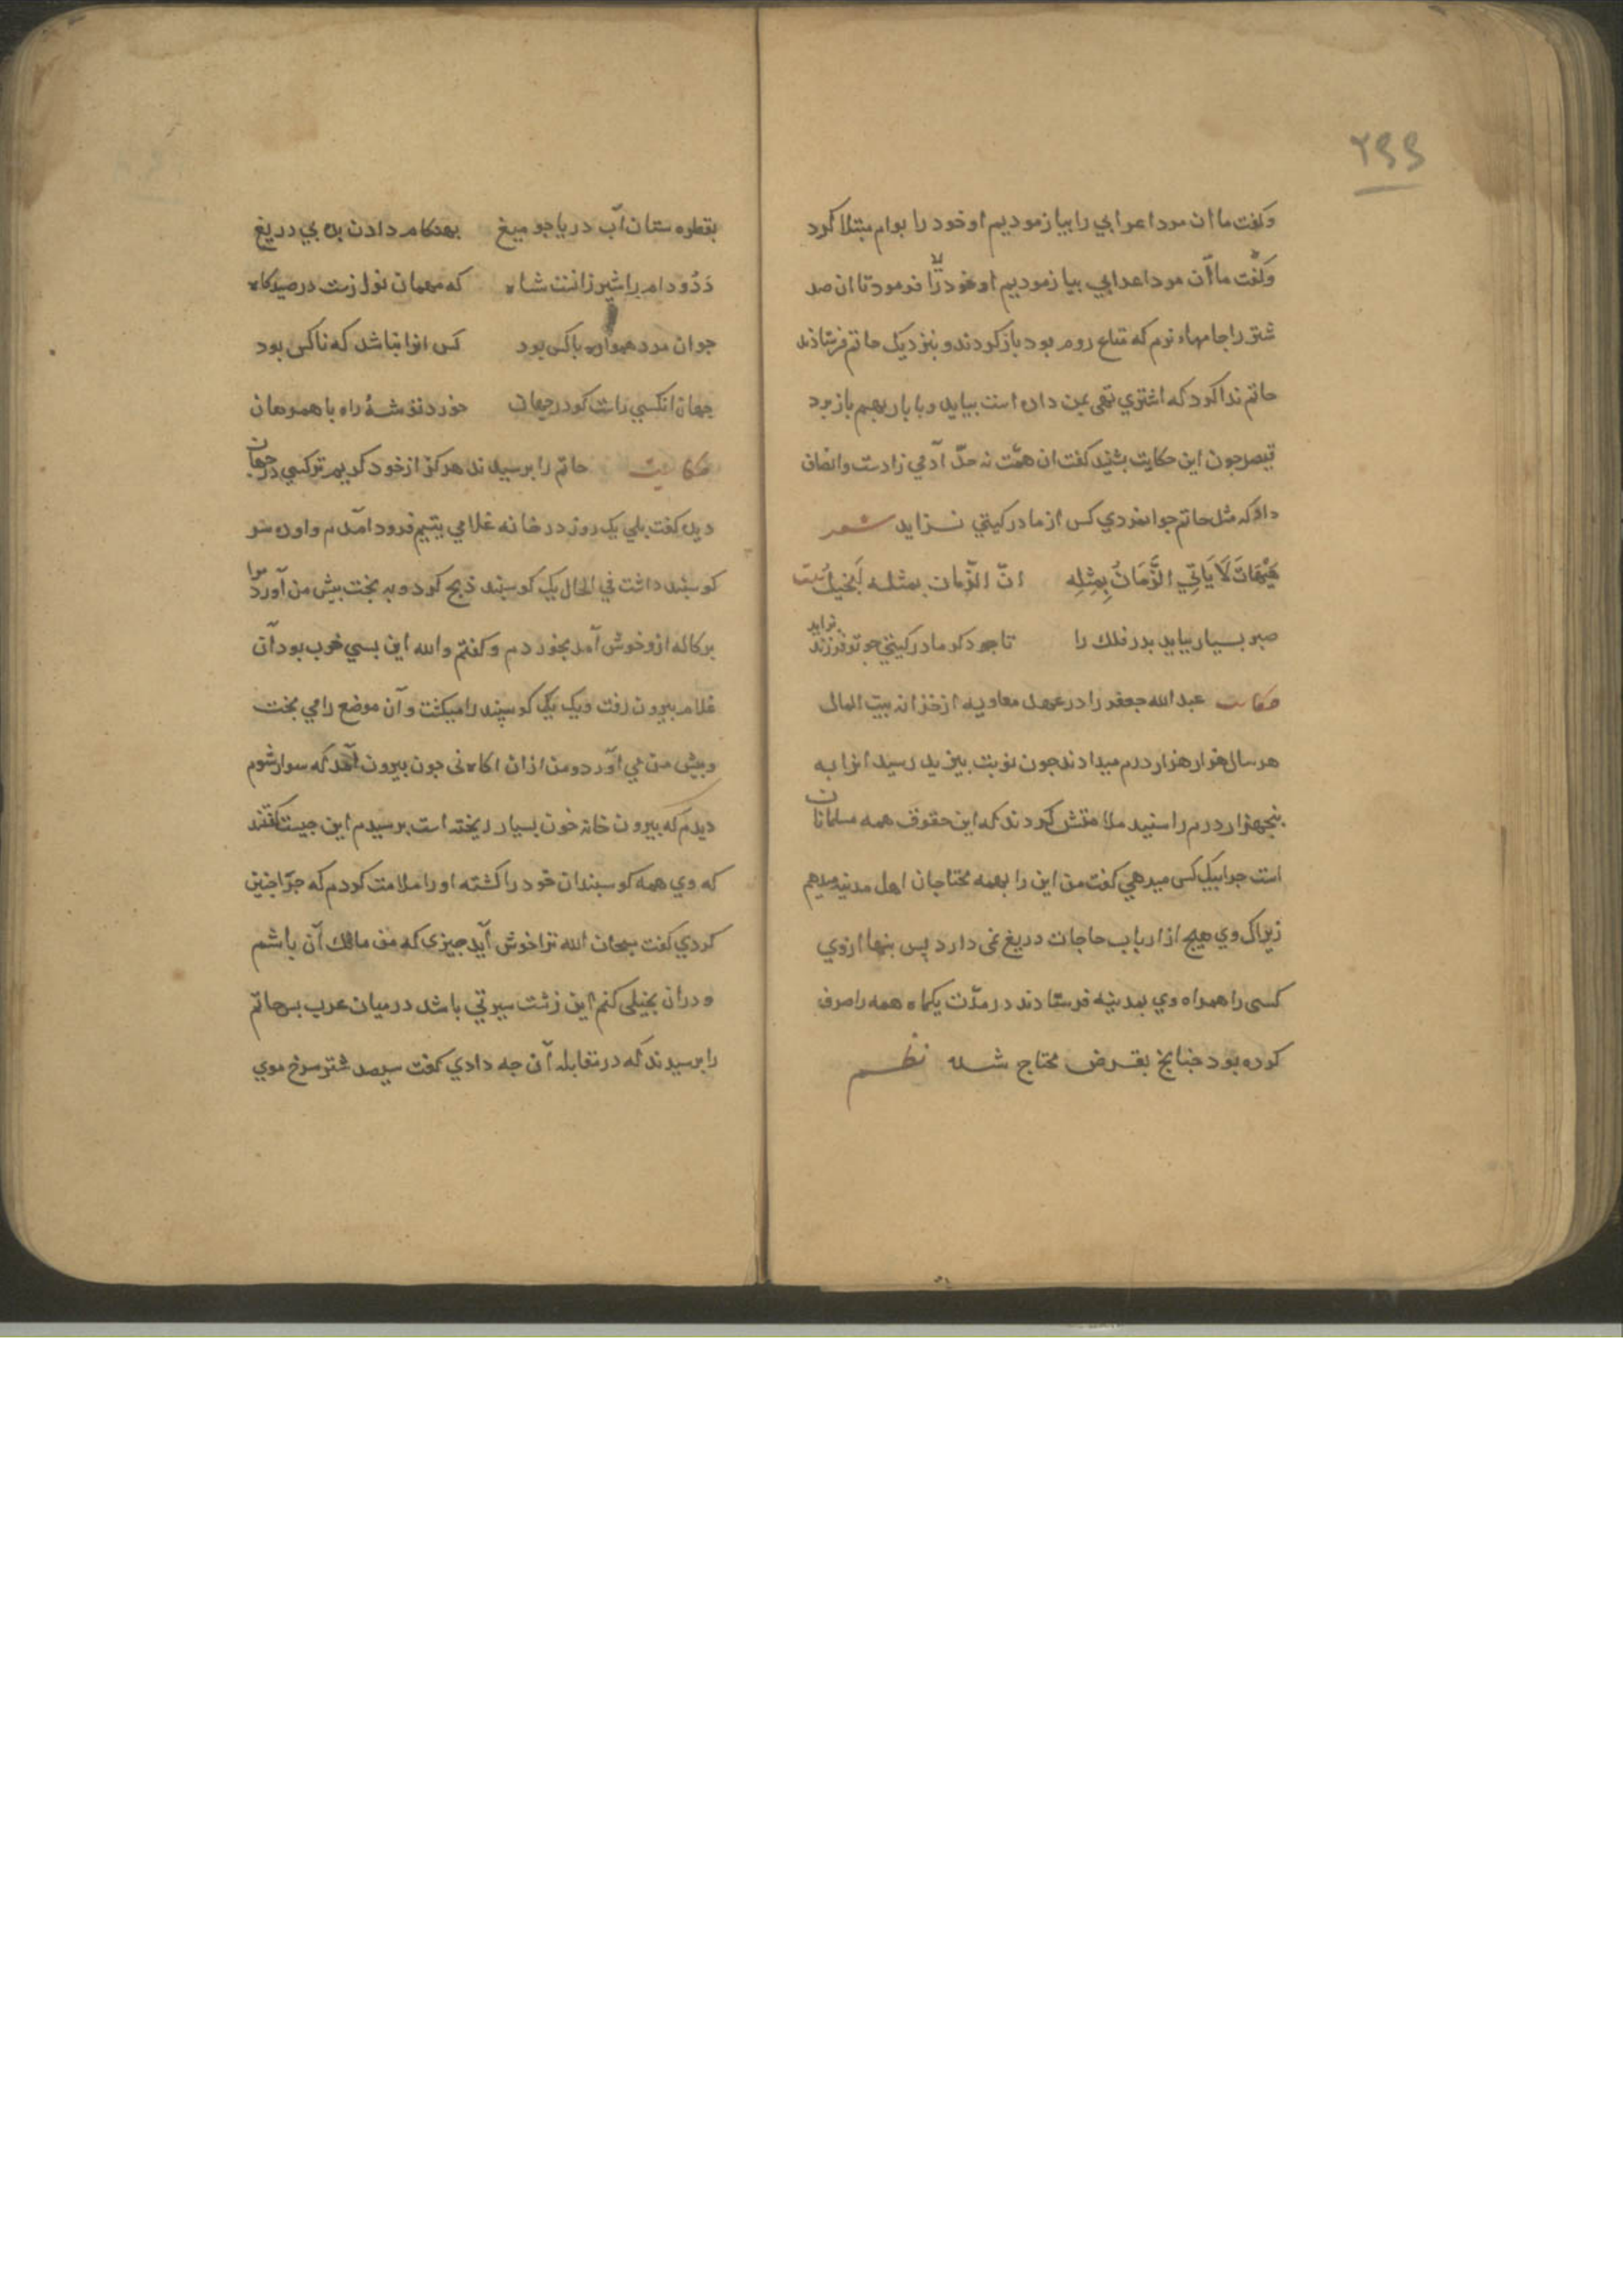 ۲۶۶
وکفت ما ان مرد اعرابی را بیازمودیم او خود را بوام مبتلا کرد
وکفت ما آن مرد اعرابی بیازمودیم او خود را فرمود تا ان صد
شتر را جامهاء نرم که متاع روم بود باز کردند و بنزدیک حاتم فرستادند
حاتم ندا کرد که اشتری تهی بمن داده است بیاید و با بار بهم باز برد
قیصر جون این حکایت بشنید کفت ان همّت نه حدّ آدمی زادست وانصاف
داد که مثل حاتم جوانمردی کس از مادر کیتی نزاید شعر
هَیْهَاتَ لَا یَاتِي الزَّمَانُ بِمِثْلِهِ انّ الزّمان بمثله لَبَخیلُ بیت
صبر بسیار بباید بدر فلك را تا جو دکر مادر کیتی جو تو فرزند بزاید
حکایت عبد الله جعفر را در عهد معاویه از خزانه بیت المال
هر سال هزار هزار درم میدادند جون نوبت بیزید رسید انرا به
بنجهزار درم رسانید ملامتش کردند که این حقوق همه مسلمانان
است جرا بیك کس میدهی کفت من این را بهمه محتاجان اهل مدینه میدهم
زیراک وی هیج از ارباب حاجات دریغ نمی دارد پس بنهان ازوی
کسی را همراه وی بمدینه فرستادند در مدّت یکماه همه را صرف
کرده بود جنانج بقرض محتاج شده نظم
بقطره ستان آب دریا جو میغ بهنکام دادن بده بی دریغ
دَدُ و دام را شیر زانست شاه که مهمان نوازست در صیدکاه
جوان مرد همواره با کس بود کس انرا نباشد که ناکس بود
جهان انکسی راست کو در جهان خورد توشۀ راه با همرهان
حکایت حاتم را برسیدند هرکز از خود کریم تر کسی در جهان
دیدی کفت بلی یک روز در خانه غلامی یتیم فرود آمدم و او ده سر
کوسبند داشت فی الحال یک کوسبند ذبح کرد و به بخت بیش من آورد مرا
برکاله ازو خوش آمد بخوردم و کفتم والله این بسی خوب بود آن
غلام بیرون رفت و یک یک کوسبند را میکشت و آن موضع را می بخت
و بیش من می آورد و من از ان اکاه نی جون بیرون آمدم که سوار شوم
دیدم که بیرون خانه خون بسیار ریخته است برسیدم این جیست کفتند
که وی همه کوسبندان خود را کشته او را ملامت کردم که جرا جنین
کردی کفت سبحان الله ترا خوش آید جیزی که من مالك آن باشم
و در ان بخیلی کنم این زشت سیرتی باشد در میان عرب بس حاتم
را برسیدند که در مقابله آن جه دادی کفت سیصد شتر سرخ موی